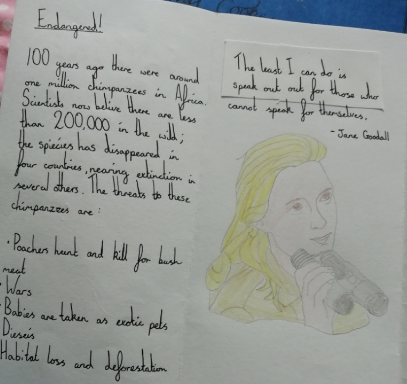 Endangered!
100 years ago there were around
one million chimpanzees in Africa.
Scientists now belive there are less
than 200,000 in the wild;
the spiecies has disappeared in
four countries, nearing extinction in
several others. The threats to these
chimpanzees are:
• Poachers hunt and kill for bush
meat
• Wars
• Babies are taken as exotic pets
Diseis
Habitat loss and deforestation
The least I can do is
speak out out for those who
cannot speak for themselves.
- Jane Goodall